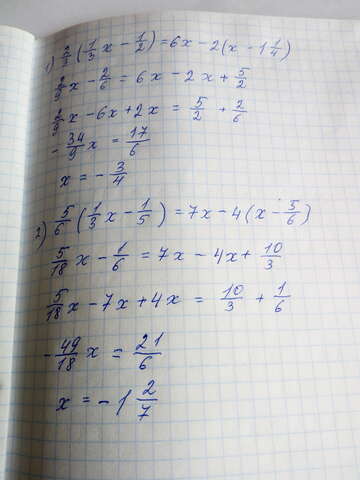 1) 2/3 (1/3 x - 1/2) = 6x - 2(x - 1 1/4)
2/9 x - 2/6 = 6x - 2x + 5/2
2/9 x - 6x + 2x = 5/2 + 2/6
- 34/9 x = 17/6
x = - 3/4
2) 5/6 (1/3 x - 1/5) = 7x - 4(x - 5/6)
5/18 x - 1/6 = 7x - 4x + 10/3
5/18 x - 7x + 4x = 10/3 + 1/6
- 49/18 x = 21/6
x = - 1 2/7